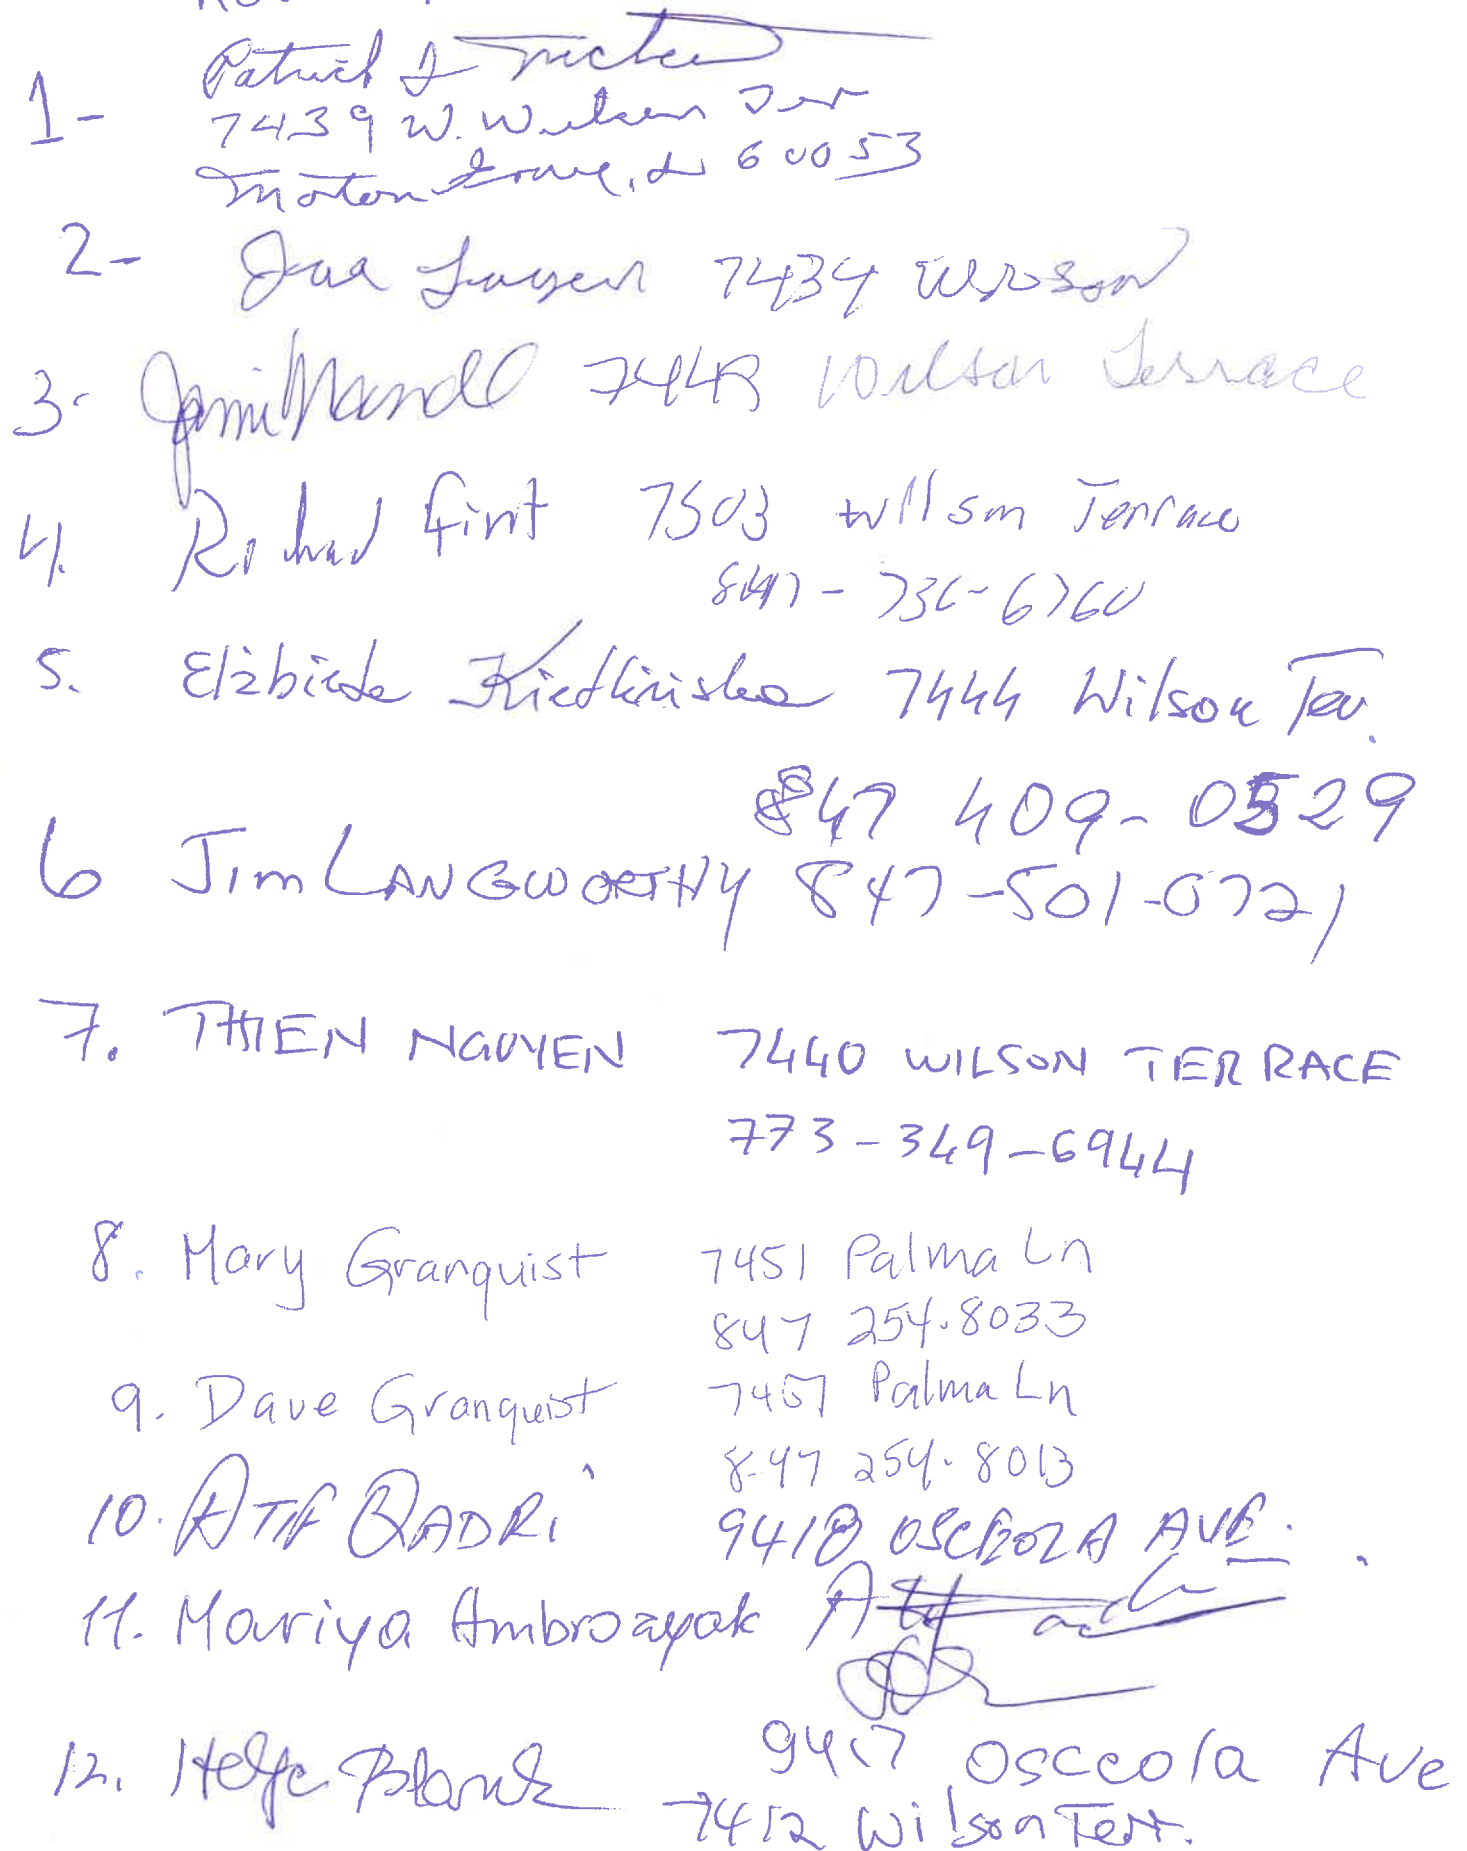 1- Patrick J
7439 W. Wilson Terr
Morton Grove, IL 60053
2- 7434 Wilson
3. Jami Mandl 7448 Wilson Terrace
4. Richard Fint 7503 Wilson Terrace
847-736-6760
5. Elzbieta Kiedlinska 7444 Wilson Terr.
847 409-0529
6 Jim LANGWORTHY 847-501-0721
7. THIEN NGUYEN 7440 WILSON TERRACE
773-349-6944
8. Mary Granquist 7451 Palma Ln
847 254.8033
9. Dave Granquist 7451 Palma Ln
847 254.8013
10. ATIF QADRI 9418 OSCEOLA AVE.
11. Mariya Ambrozyak
9417 Osceola Ave
12. Helge Blank 7412 Wilson Terr.